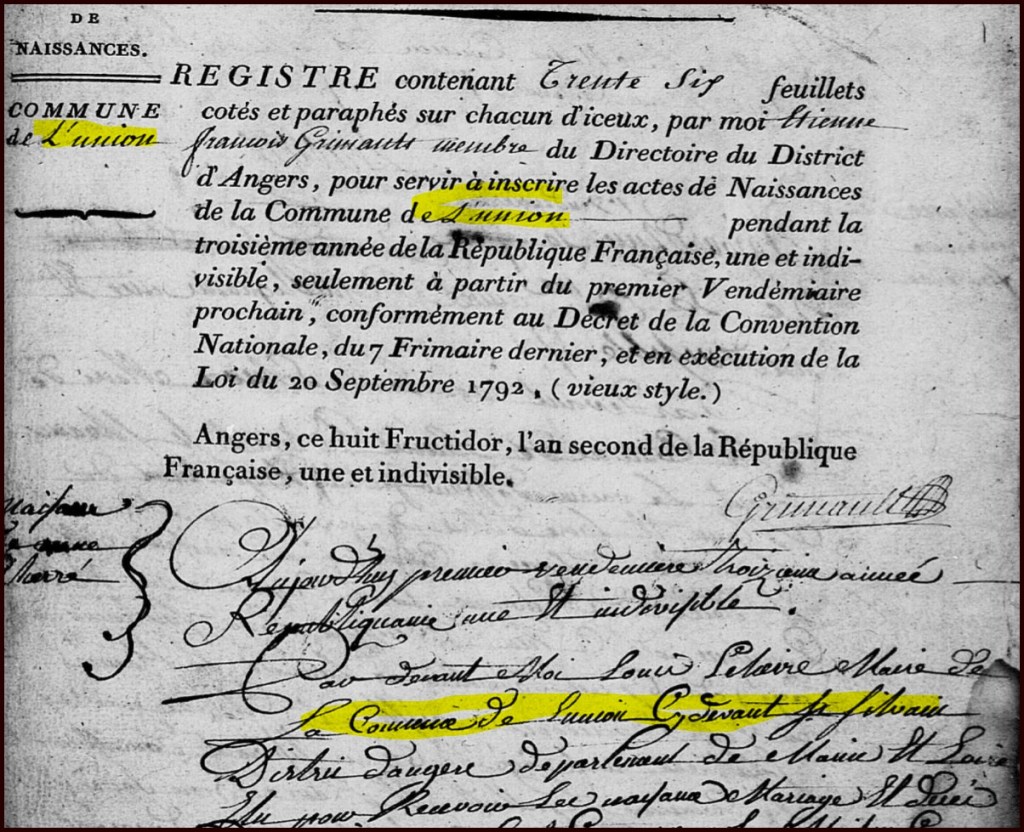 DE
NAISSANCES.
COMMUNE
de L'union
REGISTRE contenant Trente Six feuillets
cotés et paraphés sur chacun d'iceux, par moi Etienne
francois Grimault membre du Directoire du District
d'Angers, pour servir à inscrire les actes de Naissances
de la Commune de L'union pendant la
troisième année de la République Française, une et indi-
visible, seulement à partir du premier Vendémiaire
prochain, conformément au Décret de la Convention
Nationale, du 7 Frimaire dernier, et en exécution de la
Loi du 20 Septembre 1792. (vieux style.)
Angers, ce huit Fructidor, l'an second de la République
Française, une et indivisible.
Grimault
Aujourdhuy premier vendemiere troizieme annee
Republiquaine une Et indivisible.
Par devant Moi Louis Maire de
La Commune de Lunion Cydevant st Silvain
District dangers departement de Maine Et Loire
Elu pour Recevoir Les naisance Mariage Et deces